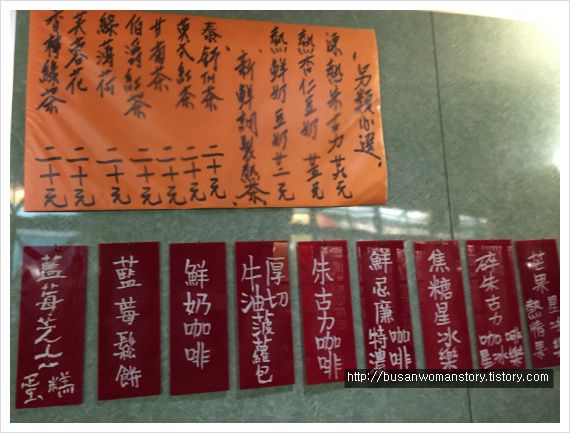 另類心選
凍熱朱古力 廿八元
熱杏仁豆奶 廿五元
熱鮮奶豆奶 廿二元
新鮮調製熱茶
泰舒何茶 二十元
英式紅茶 二十元
甘菊茶 二十元
伯爵紅茶 二十元
綠薄荷 二十元
芙蓉花 二十元
二十元
藍莓芝士蛋糕
藍莓鬆餅
鮮奶咖啡
厚切牛油菠蘿包
朱古力咖啡
鮮忌廉特濃咖啡
焦糖星冰樂
碎朱古力咖啡星冰樂
芒果熱情果星冰樂
http://busanwomanstory.tistory.com